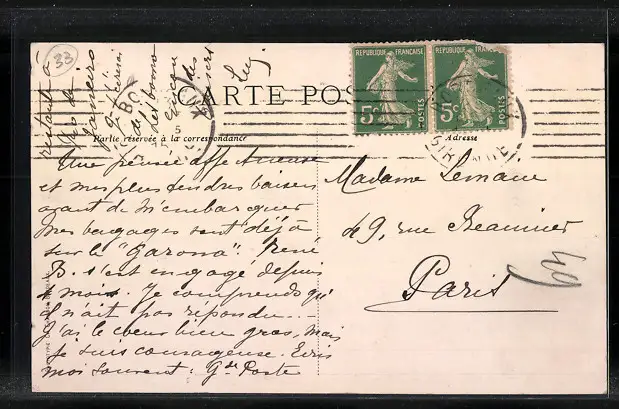 33
REPUBLIQUE FRANÇAISE
REPUBLIQUE FRANÇAISE
5c
POSTES
5c
POSTES
CARTE POS
Partie réservée à la correspondance
Adresse
Une pensée affectueuse
et mes plus tendres baisers
avant de m'embarquer
mes bagages sont déjà
sur le "Garonna". René
B. s'est engagé depuis
mois. Je comprends qu'
il n'ait pas répondu...
J'ai le coeur bien gros, mais
je suis courageuse. Ecris
moi souvent: Gde Poste
restante à
Rio de
Janeiro
de Lisbonne
encore
Madame Lemaire
49, rue Beaunier
Paris